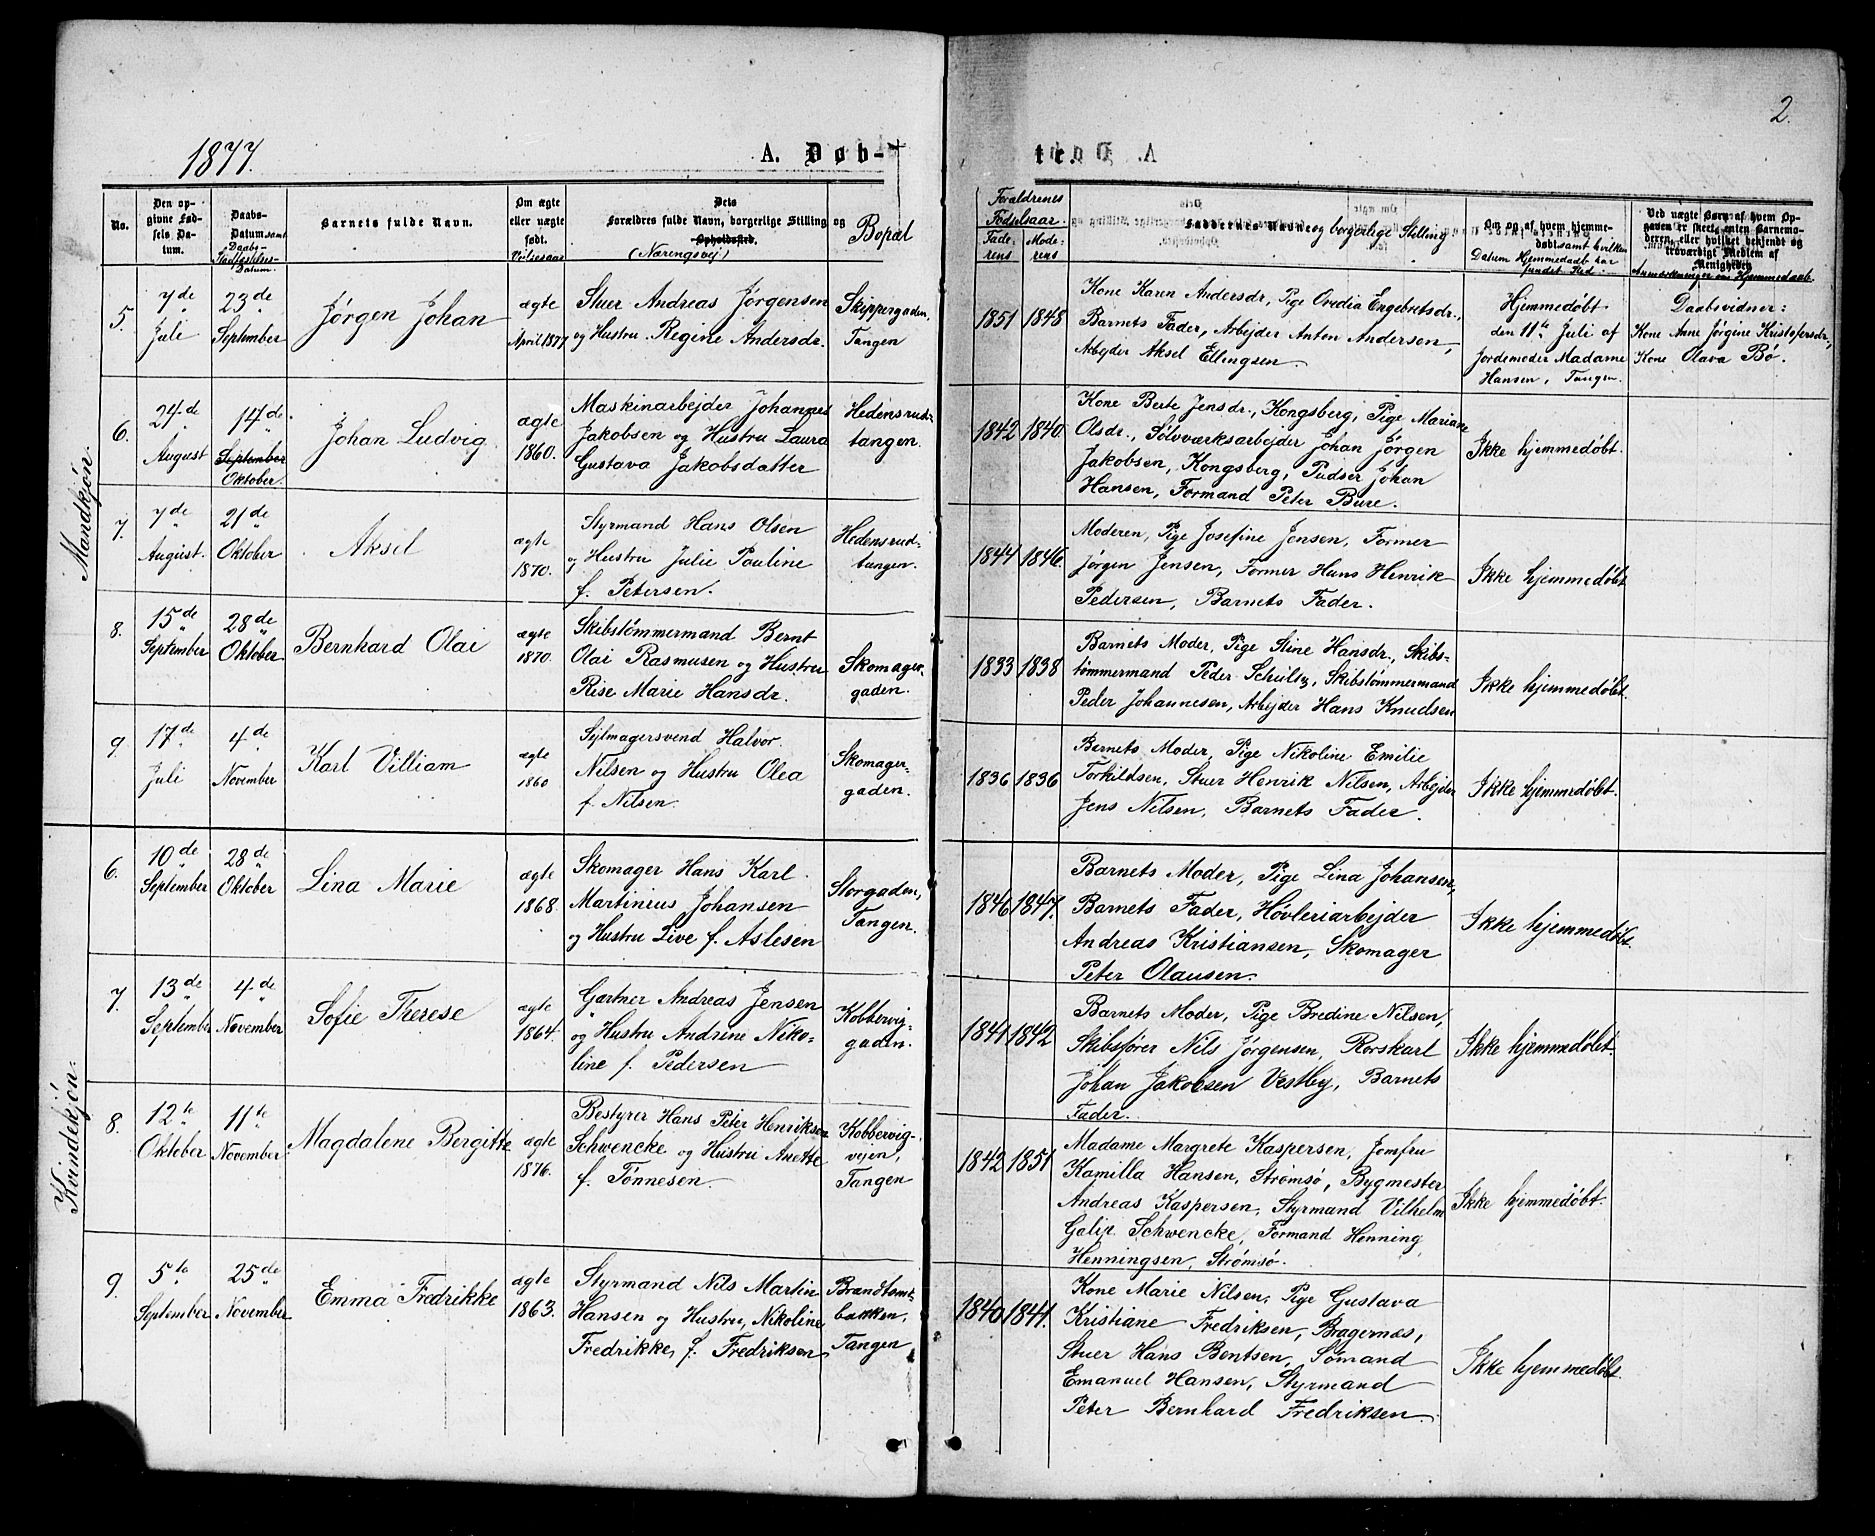 1877.
A. Døb-
te.
2.
No.
Den op-
givne Fød-
sels Da-
tum.
Daabs-
Datum samt
Daabs-
Stadfæstelses-
Datum.
Barnets fulde Navn.
Om ægte
eller uægte
født.
Vielsesaar
Dets
Forældres fulde Navn, borgerlige Stilling og
Opholdssted.
(Næringsvej)
Bopæl
Forældrenes
Fødselsaar.
Fade-
rens
Mode-
rens
Faddernes Navne og borgerlige Stilling
Om og af hvem hjemme-
døbt samt hvilken
Datum Hjemmedaab har
fundet Sted.
Ved uægte Børn af hvem Op-
gaven er skeet, enten Barnemo-
deren, eller hvilket bekjendt og
troværdigt Medlem af
Menigheden
Anmærkninger om Hjemmedaab.
Mandkjøn.
5.
7de
Juli
23de
September
Jørgen Johan
ægte
April 1877
Stuer Andreas Jørgensen
og Hustru Regine Andersdr.
Skippergaden,
Tangen
1851
1848
Kone Karen Andersdr., Pige Ovedia Engebretsdr.,
Barnets Fader, Arbejder Anton Andersen,
Arbejder Aksel Ellingsen.
Hjemmedøbt
den 11te Juli af
Jordemoder Madame
Hansen, Tangen.
Daabsvidner:
Kone Anne Jørgine Kristofersdr.,
Kone Olava Bø.
6.
24de
August
14de
September
Oktober.
Johan Ludvig
ægte
1860.
Maskinarbejder Johannes
Jakobsen og Hustru Laura
Gustava Jakobsdatter
Hedensrud-
tangen.
1842
1840.
Kone Berte Jensdr., Kongsberg, Pige Mariane
Olsdr., Sølvværksarbejder Johan Jørgen
Jakobsen, Kongsberg, Pudser Johan
Hansen, Formand Peter Bure.
Ikke hjemmedøbt.
7.
7de
August.
21de
Oktober
Aksel
ægte
1870.
Styrmand Hans Olsen
og Hustru Julie Pauline
f. Petersen.
Hedensrud-
tangen.
1844
1846.
Moderen, Pige Josefine Jensen, Former
Jørgen Jensen, Former Hans Henrik
Pedersen, Barnets Fader.
Ikke hjemmedøbt
8.
15de
September
28de
Oktober
Bernhard Olai
ægte
1870.
Skibstømmermand Bernt
Olai Rasmusen og Hustru
Rise Marie Hansdr.
Skomager-
gaden.
1833
1838
Barnets Moder, Pige Stine Hansdr., Skibs-
tømmermand Peder Schultz, Skibstømmermand
Peder Johannesen, Arbejder Hans Knudsen
Ikke hjemmedøbt.
9.
17de
Juli
4de
November
Karl Villiam
ægte
1860
Sejlmagersvend Halvor
Nilsen og Hustru Olea
f. Nilsen.
Skomager-
gaden.
1836
1836
Barnets Moder, Pige Nikoline Emilie
Torkildsen, Stuer Henrik Nilsen, Arbejder
Jens Nilsen, Barnets Fader.
Ikke hjemmedøbt.
Kvindekjøn.
6.
10de
September
28de
Oktober
Lina Marie
ægte
1868.
Skomager Hans Karl
Martinius Johansen
og Hustru Live f. Aslesen
Storgaden,
Tangen.
1846
1847.
Barnets Moder, Pige Lina Johansen,
Barnets Fader, Høvleriarbejder
Andreas Kristiansen, Skomager
Peter Olausen.
Ikke hjemmedøbt.
7.
13de
September
4de
November
Sofie Therese
ægte
1864.
Gartner Andreas Jensen
og Hustru Andrine Niko-
line f. Pedersen
Kobbervig-
gaden.
1841
1842
Barnets Moder, Pige Bredine Nilsen,
Skibsfører Nils Jørgensen, Rorskarl
Johan Jakobsen Vestby, Barnets
Fader.
Ikke hjemmedøbt.
8.
12te
Oktober
11te
November.
Magdalene Bergitte
ægte
1876.
Bestyrer Hans Peter Henriksen
Schwencke og Hustru Anette
f. Tønnesen.
Kobbervig-
vejen,
Tangen
1842
1851
Madame Margrete Kaspersen, Jomfru
Kamilla Hansen, Strømsø, Bygmester
Andreas Kaspersen, Styrmand Vilhelm
Schwencke, Formand Henning
Henningsen, Strømsø.
Ikke hjemmedøbt.
9.
5te
September
25de
November
Emma Fredrikke
ægte
1863.
Styrmand Nils Martin
Hansen og Hustru, Nikoline
Fredrikke, f. Fredriksen,
Brandtomt-
bakken,
Tangen
1840
1841.
Kone Marie Nilsen, Pige Gustava
Kristiane Fredriksen, Bragernæs,
Stuer Hans Bentsen, Sømand
Emanuel Hansen, Styrmand
Peter Bernhard Fredriksen.
Ikke hjemmedøbt.